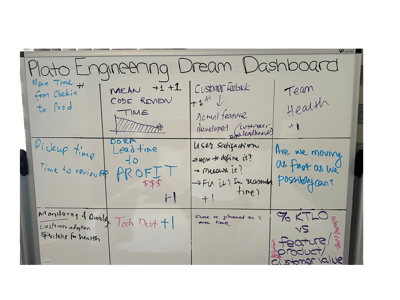 Plato Engineering Dream Dashboard
Mean Time +1
from Checkin
to Prod
MEAN +1 +1
CODE REVIEW
TIME
Customer Feedback
+1 +1
Actual feature
developed
Team
Health
+1
Pickup time
Time to review PR
DORA
Lead time
to
PROFIT
$$$
+1
User satisfaction
how to define it?
measure it?
Fix it? In reasonable
time?
+1
Are we moving
as fast as we
possibly can?
Monitoring &
customer adoption
for health
Tech Debt +1
% KTLO
vs
feature/
product/
customer value